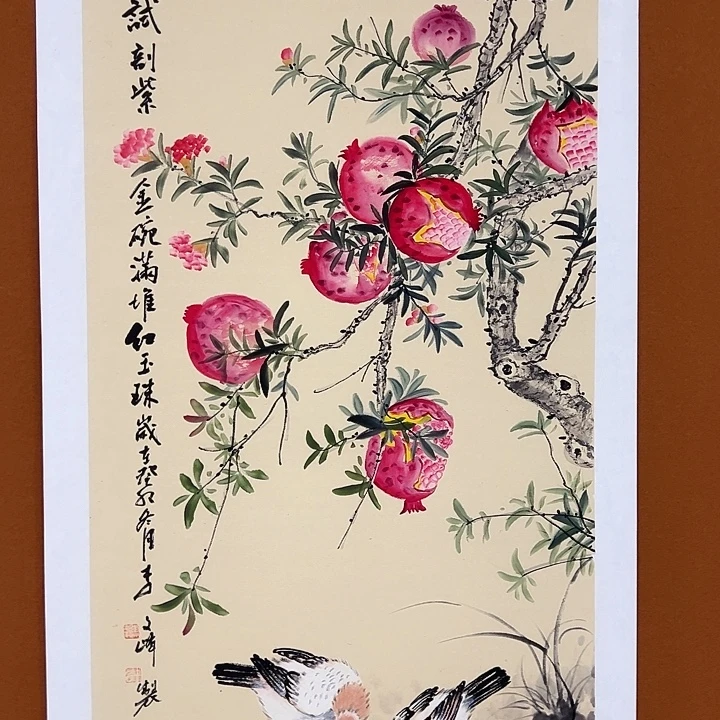 試剖紫金碗滿堆紅玉珠歲在癸卯冬月李文峰製